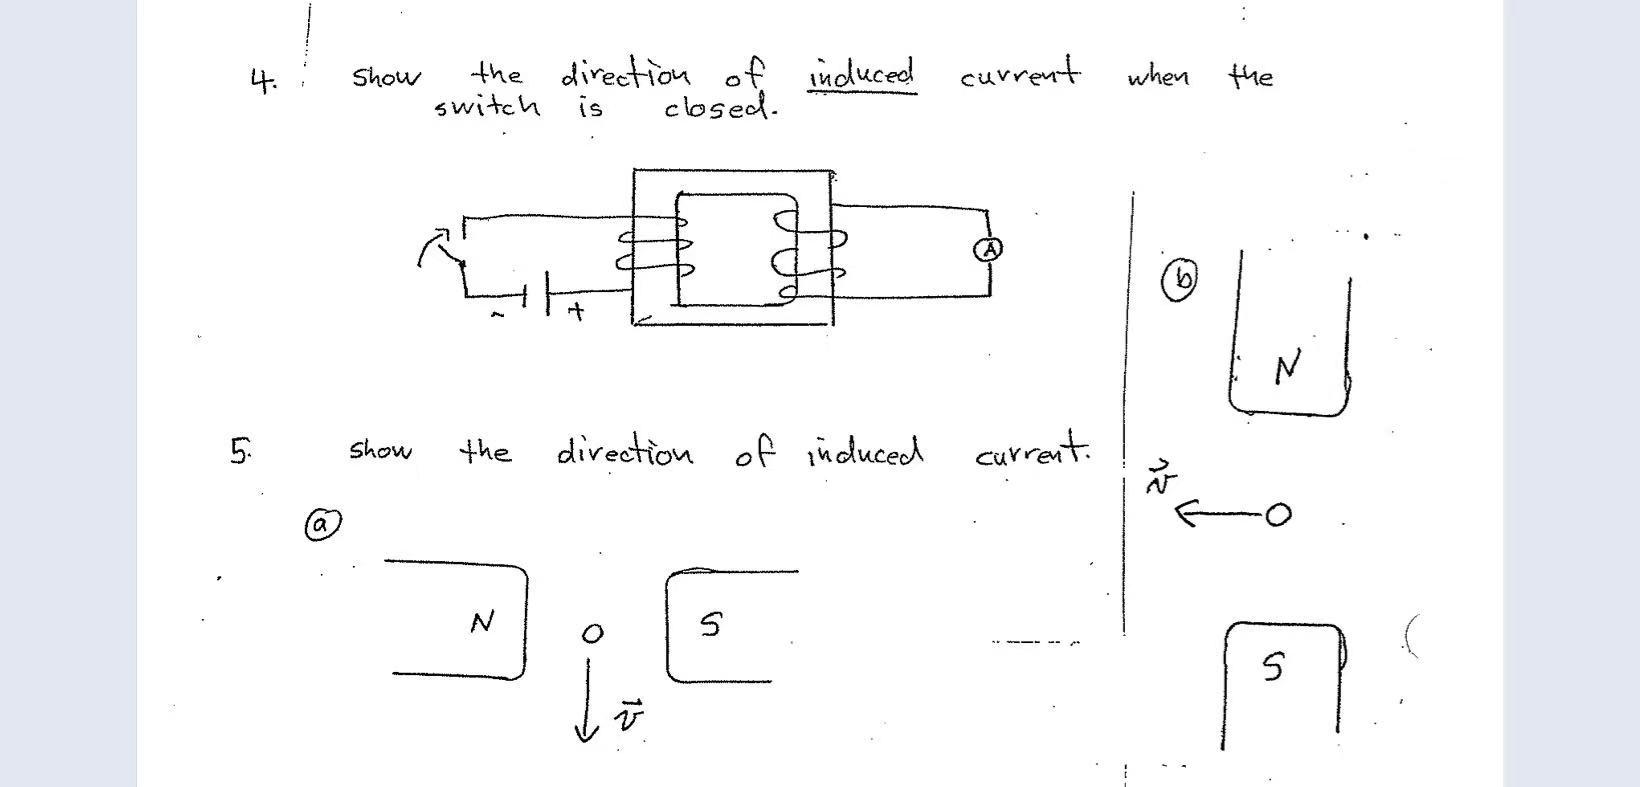 4. show the direction of induced current when the
switch is closed.
A
- +
5. show the direction of induced current.
(a)
N S
v⃗
(b)
N
v⃗
S